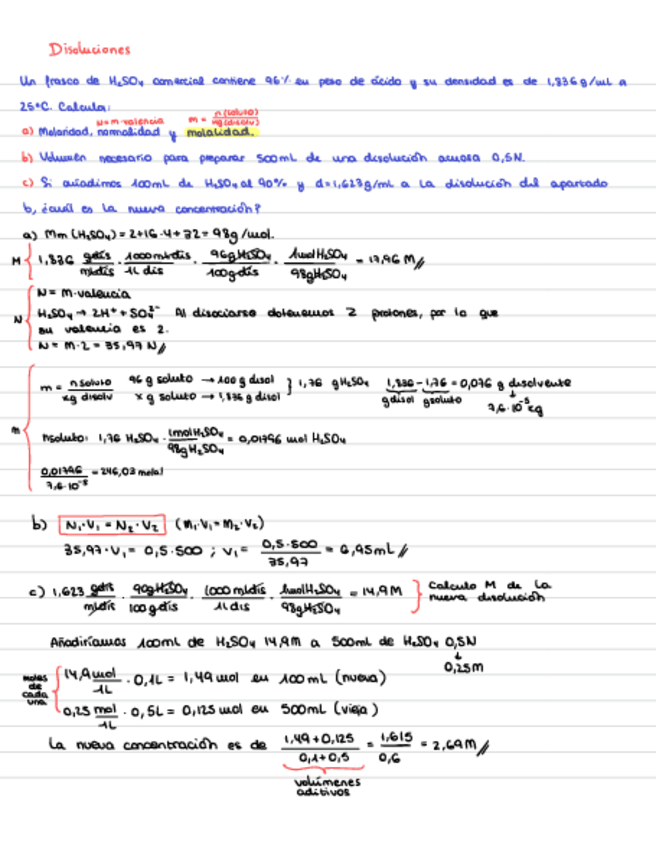 Disoluciones
Un frasco de H₂SO₄ comercial contiene 96% en peso de ácido y su densidad es de 1,836 g/mL a
25°C. Calcula:
N=m·valencia m = n(soluto)/kg(disolv)
a) Molaridad, normalidad y molalidad.
b) Volumen necesario para preparar 500mL de una disolución acuosa 0,5N.
c) Si añadimos 100mL de H₂SO₄ al 90% y d=1,623g/mL a la disolución del apartado
b, ¿cuál es la nueva concentración?
a) Mm (H₂SO₄) = 2+16·4+32 = 98g/mol.
M { 1,836 gdis/mLdis · 1000mLdis/1L dis · 96gH₂SO₄/100gdis · 1molH₂SO₄/98gH₂SO₄ = 17,96 M//
N = M·valencia
N { H₂SO₄ → 2H⁺ + SO₄²⁻ Al disociarse obtenemos 2 protones, por lo que
su valencia es 2.
N = M·2 = 35,97 N//
m = n soluto/kg disolv 96 g soluto → 100 g disol } 1,76 gH₂SO₄ 1,836 - 1,76 = 0,076 g disolvente
x g soluto → 1,836 g disol gdisol gsoluto ↓ 7,6·10⁻⁵ kg
m { nsoluto: 1,76 H₂SO₄ · 1molH₂SO₄/98gH₂SO₄ = 0,01796 mol H₂SO₄
0,01796/7,6·10⁻⁵ = 246,03 molal
b) N₁·V₁ = N₂·V₂ (M₁·V₁=M₂·V₂)
35,97·V₁ = 0,5·500 ; V₁ = 0,5·500/35,97 = 6,95mL//
c) 1,623 gdis/mLdis · 90gH₂SO₄/100gdis · 1000mLdis/1Ldis · 1molH₂SO₄/98gH₂SO₄ = 14,9M } Calculo M de la
nueva disolución
Añadiríamos 100mL de H₂SO₄ 14,9M a 500mL de H₂SO₄ 0,5N
↓
0,25M
moles de cada una { 14,9mol/1L · 0,1L = 1,49 mol en 100mL (nueva)
0,25 mol/1L · 0,5L = 0,125 mol en 500mL (vieja)
La nueva concentración es de 1,49+0,125/0,1+0,5 = 1,615/0,6 = 2,69M//
volúmenes
aditivos